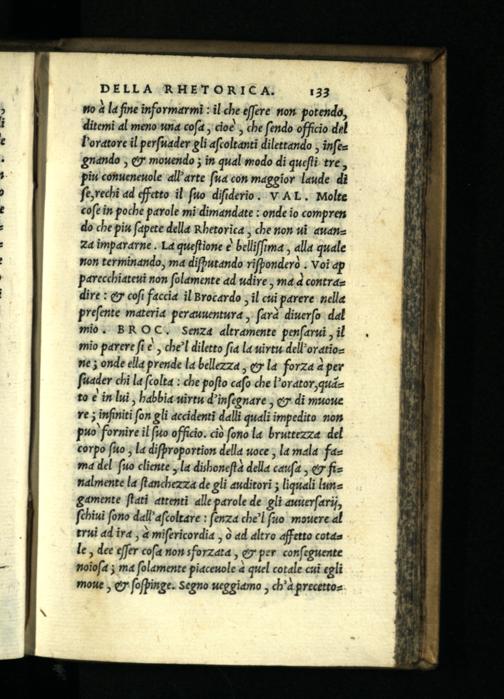 DELLA RHETORICA. 133
no à la fine informarmi: il che essere non potendo,
ditemi al meno una cosa, cioè, che sendo officio del
l'oratore il persuader gli ascoltanti dilettando, inse=
gnando, & mouendo; in qual modo di questi tre,
piu conueneuole all'arte sua con maggior laude di
se, rechi ad effetto il suo disiderio. VAL. Molte
cose in poche parole mi dimandate: onde io compren
do che piu sapete della Rhetorica, che non ui auan=
za impararne. La questione è bellissima, alla quale
non terminando, ma disputando risponderò. Voi ap
parecchiateui non solamente ad udire, ma à contra=
dire: & cosi faccia il Brocardo, il cui parere nella
presente materia perauuentura, sarà diuerso dal
mio. BROC. Senza altramente pensarui, il
mio parere si è, che'l diletto sia la uirtu dell'oratio=
ne; onde ella prende la bellezza, & la forza à per
suader chi la scolta: che posto caso che l'orator, quã=
to è in lui, habbia uirtu d'insegnare, & di muoue
re; infiniti son gli accidenti dalli quali impedito non
può fornire il suo officio. ciò sono la bruttezza del
corpo suo, la disproportion della uoce, la mala fa=
ma del suo cliente, la dishonestà della causa, & fi=
nalmente la stanchezza de gli auditori; liquali lun=
gamente stati attenti alle parole de gli auuersarij,
schiui sono dall'ascoltare: senza che'l suo mouere al
trui ad ira, à misericordia, ò ad altro affetto cota=
le, dee esser cosa non sforzata, & per conseguente
noiosa; ma solamente piaceuole à quel cotale cui egli
moue, & sospinge. Segno ueggiamo, ch'à precetto=